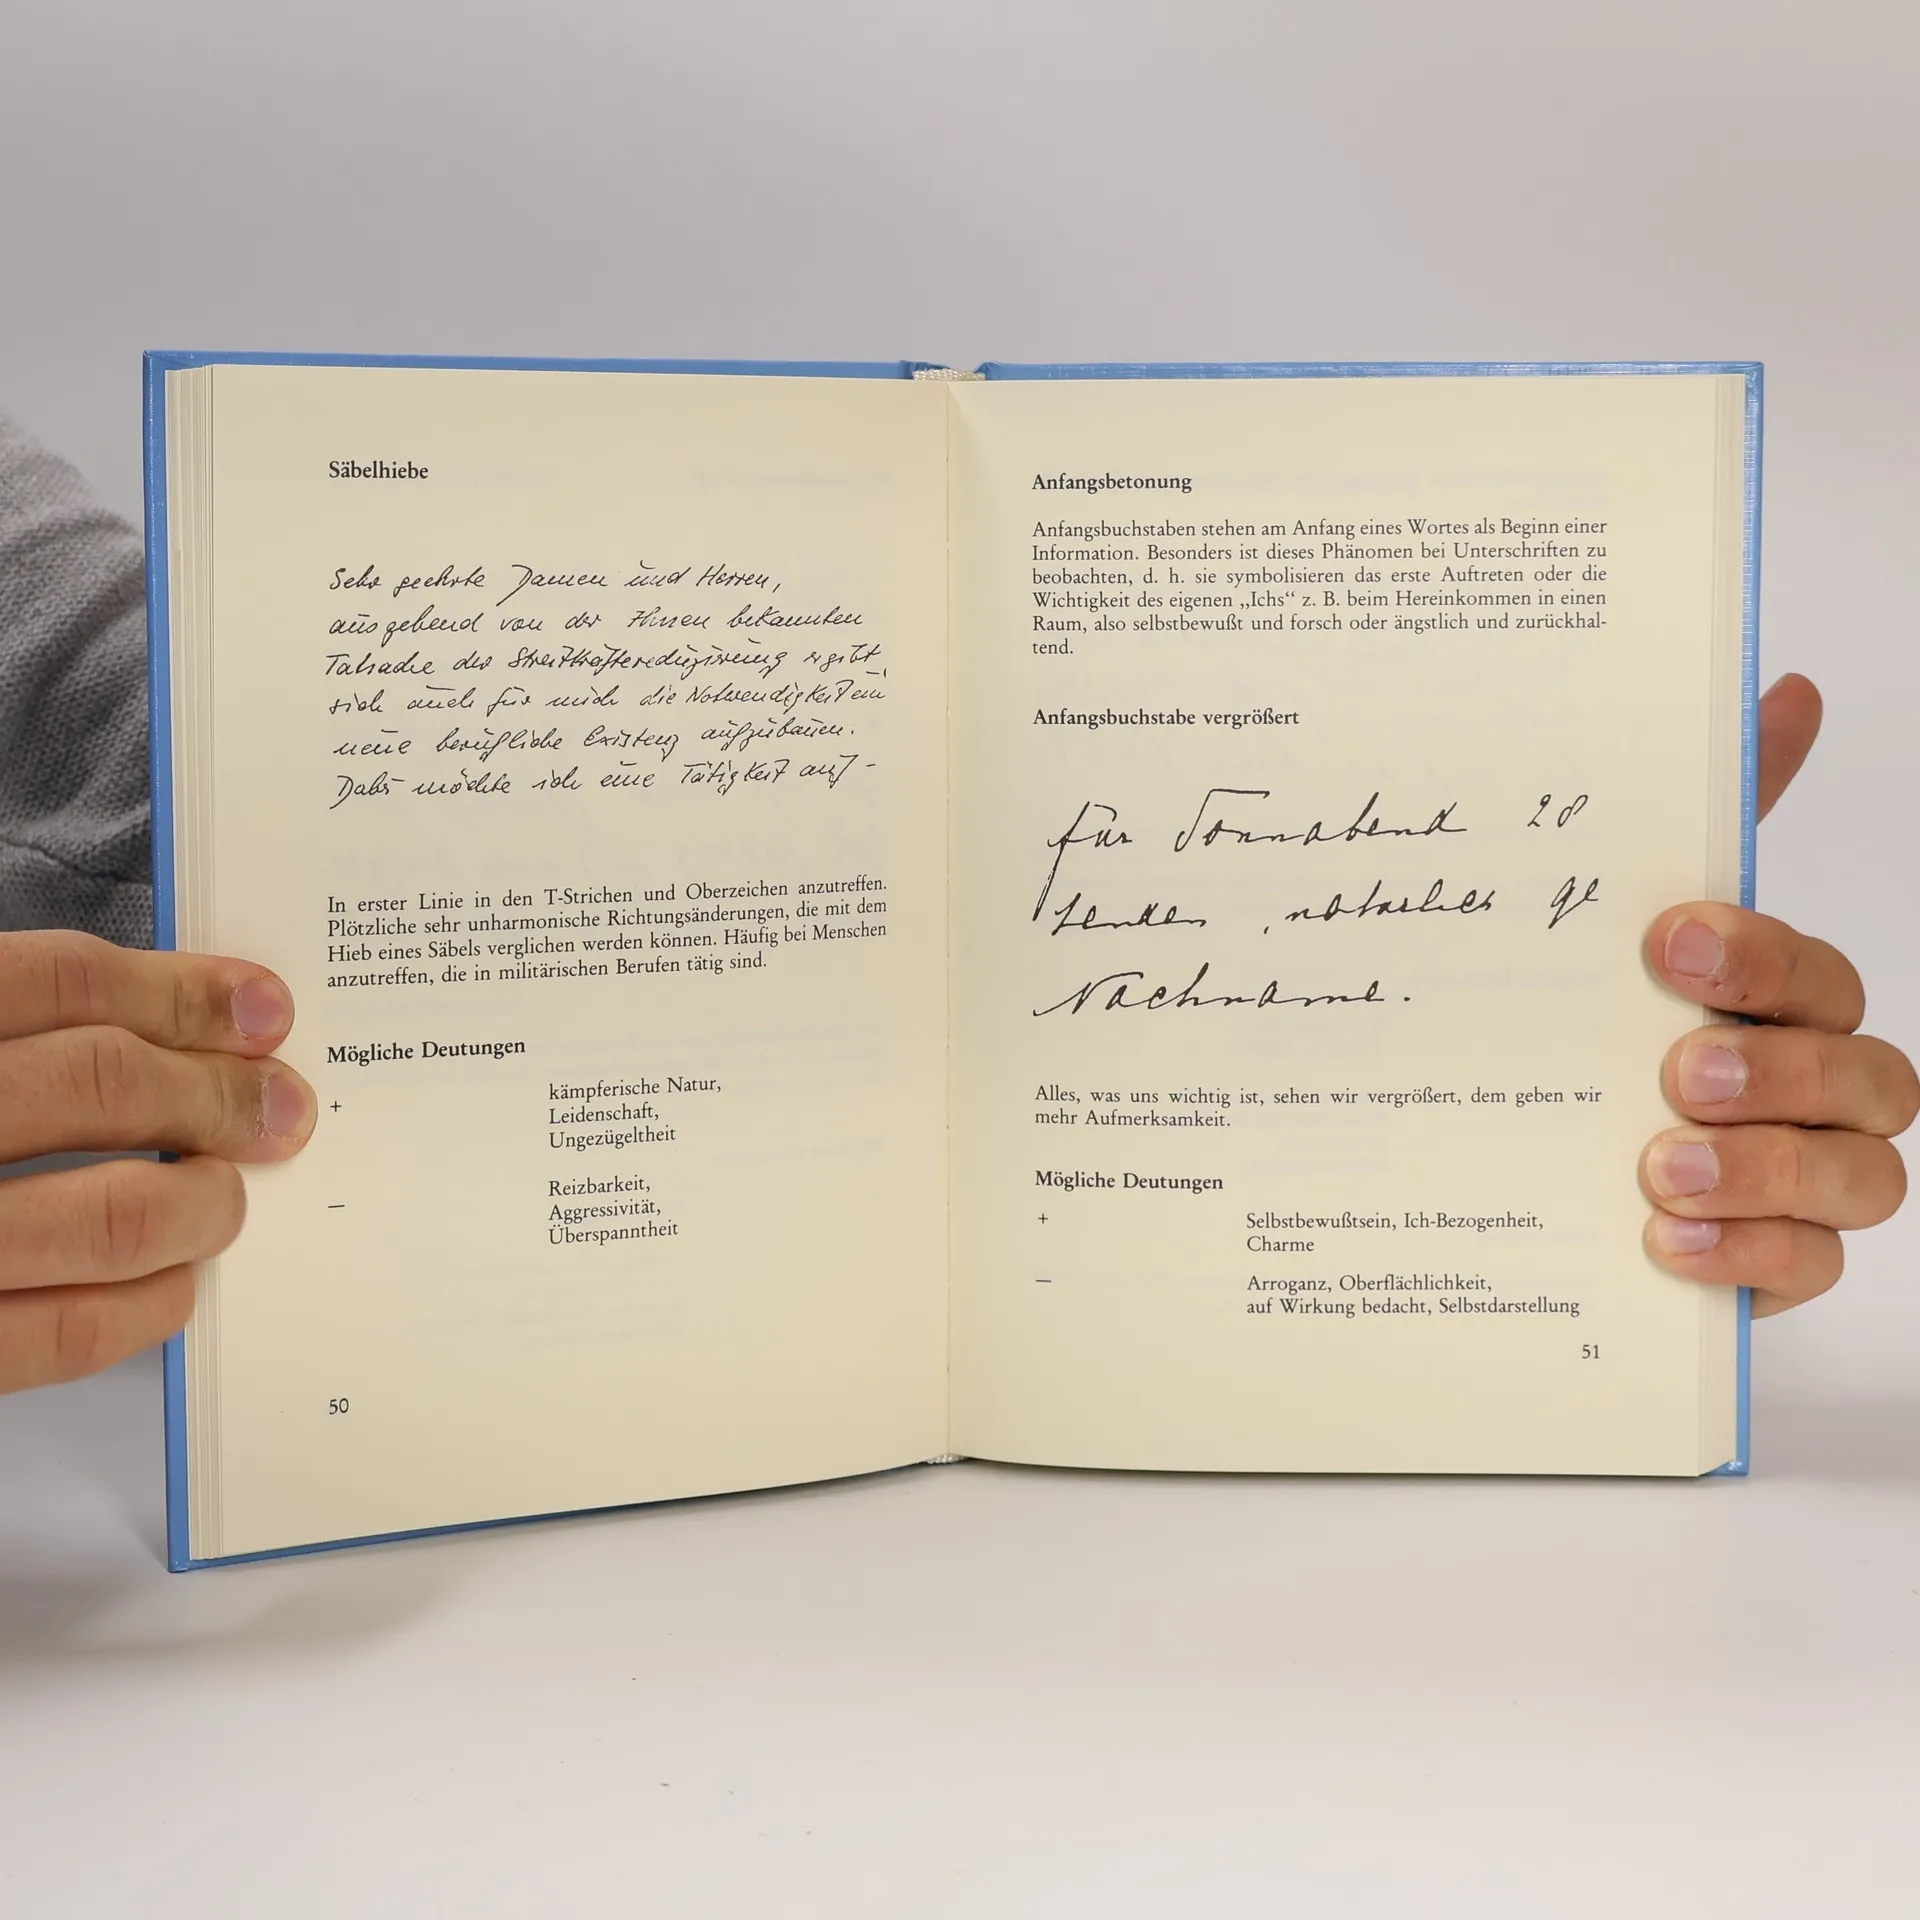 Säbelhiebe
Sehr geehrte Damen und Herren,
ausgehend von der Ihnen bekannten
Tatsache der Streitkräftereduzierung ergibt
sich auch für mich die Notwendigkeit ein
neue berufliche Existenz aufzubauen.
Dabei möchte ich eine Tätigkeit auf-
In erster Linie in den T-Strichen und Oberzeichen anzutreffen.
Plötzliche sehr unharmonische Richtungsänderungen, die mit dem
Hieb eines Säbels verglichen werden können. Häufig bei Menschen
anzutreffen, die in militärischen Berufen tätig sind.
Mögliche Deutungen
+ kämpferische Natur,
Leidenschaft,
Ungezügeltheit
— Reizbarkeit,
Aggressivität,
Überspanntheit
50
Anfangsbetonung
Anfangsbuchstaben stehen am Anfang eines Wortes als Beginn einer
Information. Besonders ist dieses Phänomen bei Unterschriften zu
beobachten, d. h. sie symbolisieren das erste Auftreten oder die
Wichtigkeit des eigenen „Ichs“ z. B. beim Hereinkommen in einen
Raum, also selbstbewußt und forsch oder ängstlich und zurückhal-
tend.
Anfangsbuchstabe vergrößert
für Sonnabend 28
senden, natürlich ge
Nachname.
Alles, was uns wichtig ist, sehen wir vergrößert, dem geben wir
mehr Aufmerksamkeit.
Mögliche Deutungen
+ Selbstbewußtsein, Ich-Bezogenheit,
Charme
— Arroganz, Oberflächlichkeit,
auf Wirkung bedacht, Selbstdarstellung
51